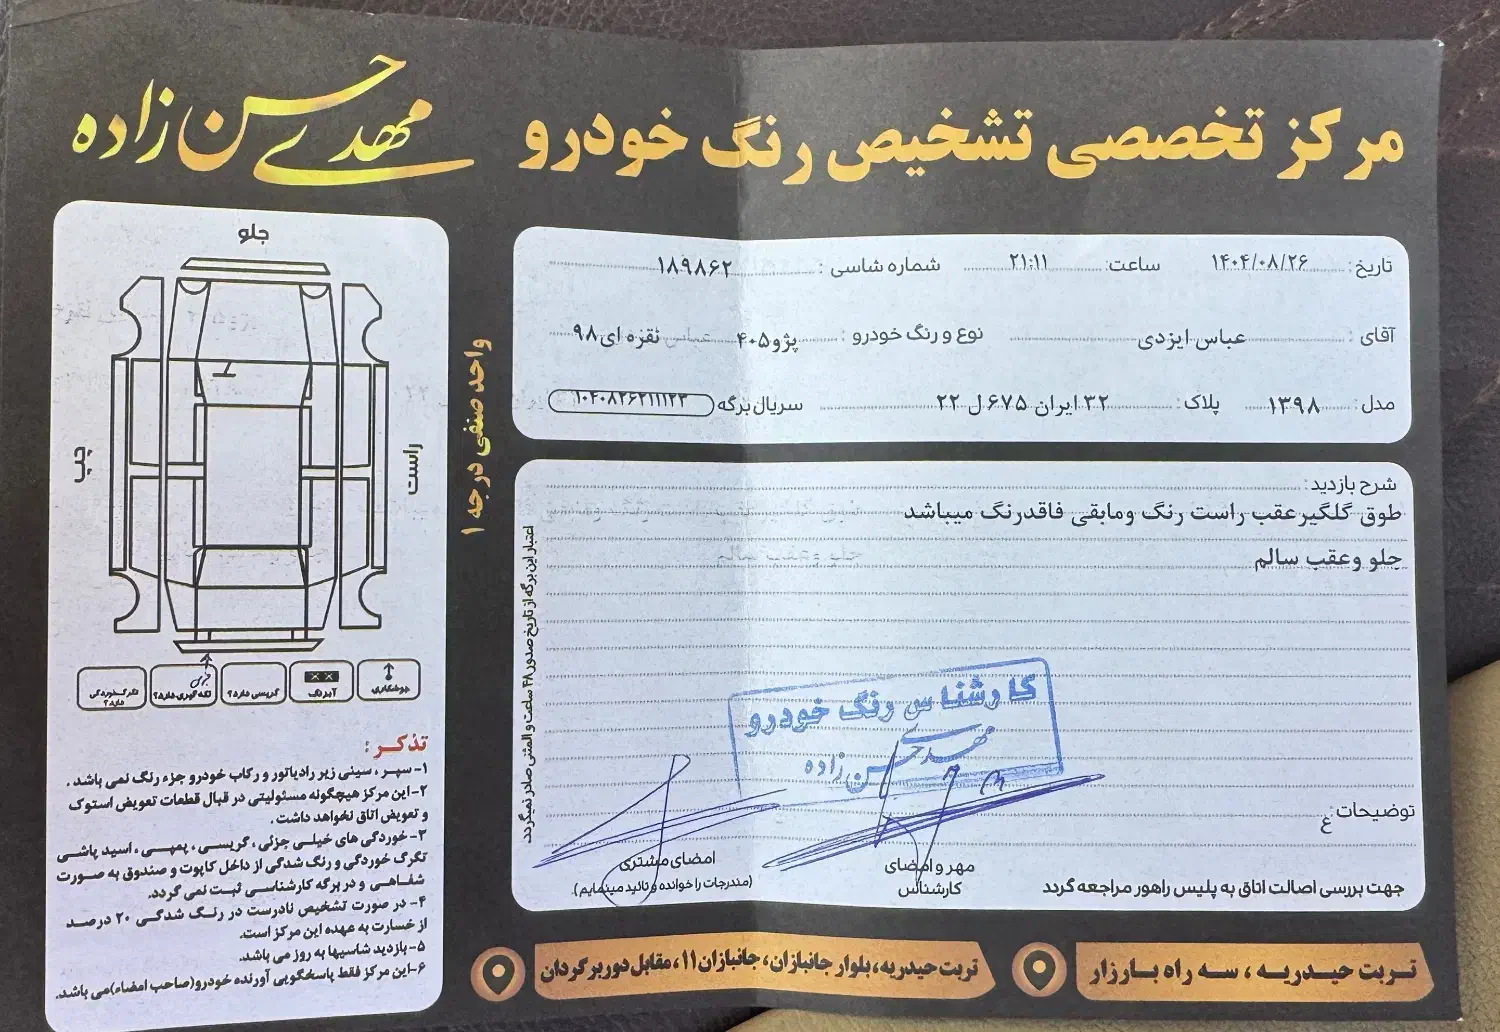 مرکز تخصصی تشخیص رنگ خودرو
مهدی حسن زاده
تاریخ: ۱۴۰۴/۰۸/۲۶ ساعت: ۲۱:۱۱ شماره شاسی: ۱۸۹۸۶۲
آقای: عباس ایزدی نوع و رنگ خودرو: پژو۴۰۵ نقره ای۹۸
مدل: ۱۳۹۸ پلاک: ۳۲ ایران ۶۷۵ ل ۲۲ سریال برگه
شرح بازدید:
طوق گلگیرعقب راست رنگ ومابقی فاقدرنگ میباشد
جلو وعقب سالم
کارشناس رنگ خودرو
مهدی حسن زاده
توضیحات:
ع
مهر و امضای
کارشناس
امضای مشتری
(مندرجات را خوانده و تائید مینمایم).
جهت بررسی اصالت اتاق به پلیس راهور مراجعه گردد
اعتبار این برگه از تاریخ صدور ۴۸ ساعت و المثنی صادر نمیگردد.
واحد صنفی درجه ۱
جلو
چپ
راست
جوشکاری
آبرنگ
گریسی دارد؟
لکه گیری دارد؟
تگرگ خوردگی
دارد؟
تذکر:
۱- سپر ، سینی زیر رادیاتور و رکاب خودرو جزء رنگ نمی باشد .
۲-این مرکز هیچگونه مسئولیتی در قبال قطعات تعویض استوک
و تعویض اتاق نخواهد داشت .
۳- خوردگی های خیلی جزئی ، گریسی ، پمپی ، اسید پاشی
تگرگ خوردگی و رنگ شدگی از داخل کاپوت و صندوق به صورت
شفاهی و در برگه کارشناسی ثبت نمی گردد.
۴- در صورت تشخیص نادرست در رنگ شدگی ۲۰ درصد
از خسارت به عهده این مرکز است.
۵- بازدید شاسیها به روز می باشد.
۶-این مرکز فقط پاسخگویی آورنده خودرو(صاحب امضاء)می باشد.
تربت حیدریه ، سه راه بارزار
تربت حیدریه، بلوار جانبازان، جانبازان ۱۱، مقابل دوربرگردان